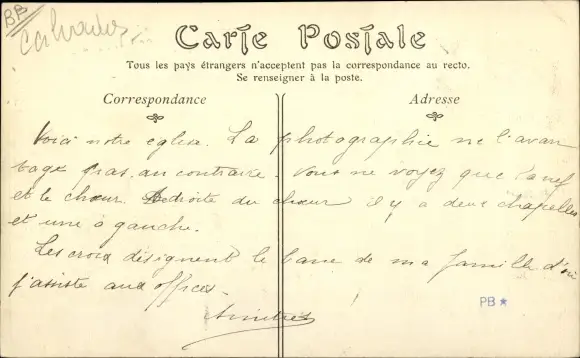 BB
Calvados
Carte Postale
Tous les pays étrangers n'acceptent pas la correspondance au recto.
Se renseigner à la poste.
Correspondance
Adresse
Voici notre eglise. La photographie ne l'avan
tage pas, au contraire. Vous ne voyez que la nef
et le chœur. A droite du chœur il y a deux chapelles
et une à gauche.
Les croix désignent le banc de ma famille d'où
j'assiste aux offices.
PB ★